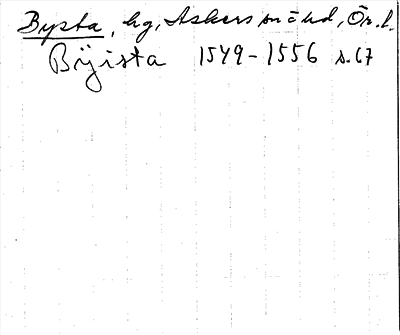 Bysta, hg, Askers sn o hd, Ör. l.
Bÿista 1549-1556 s. 67